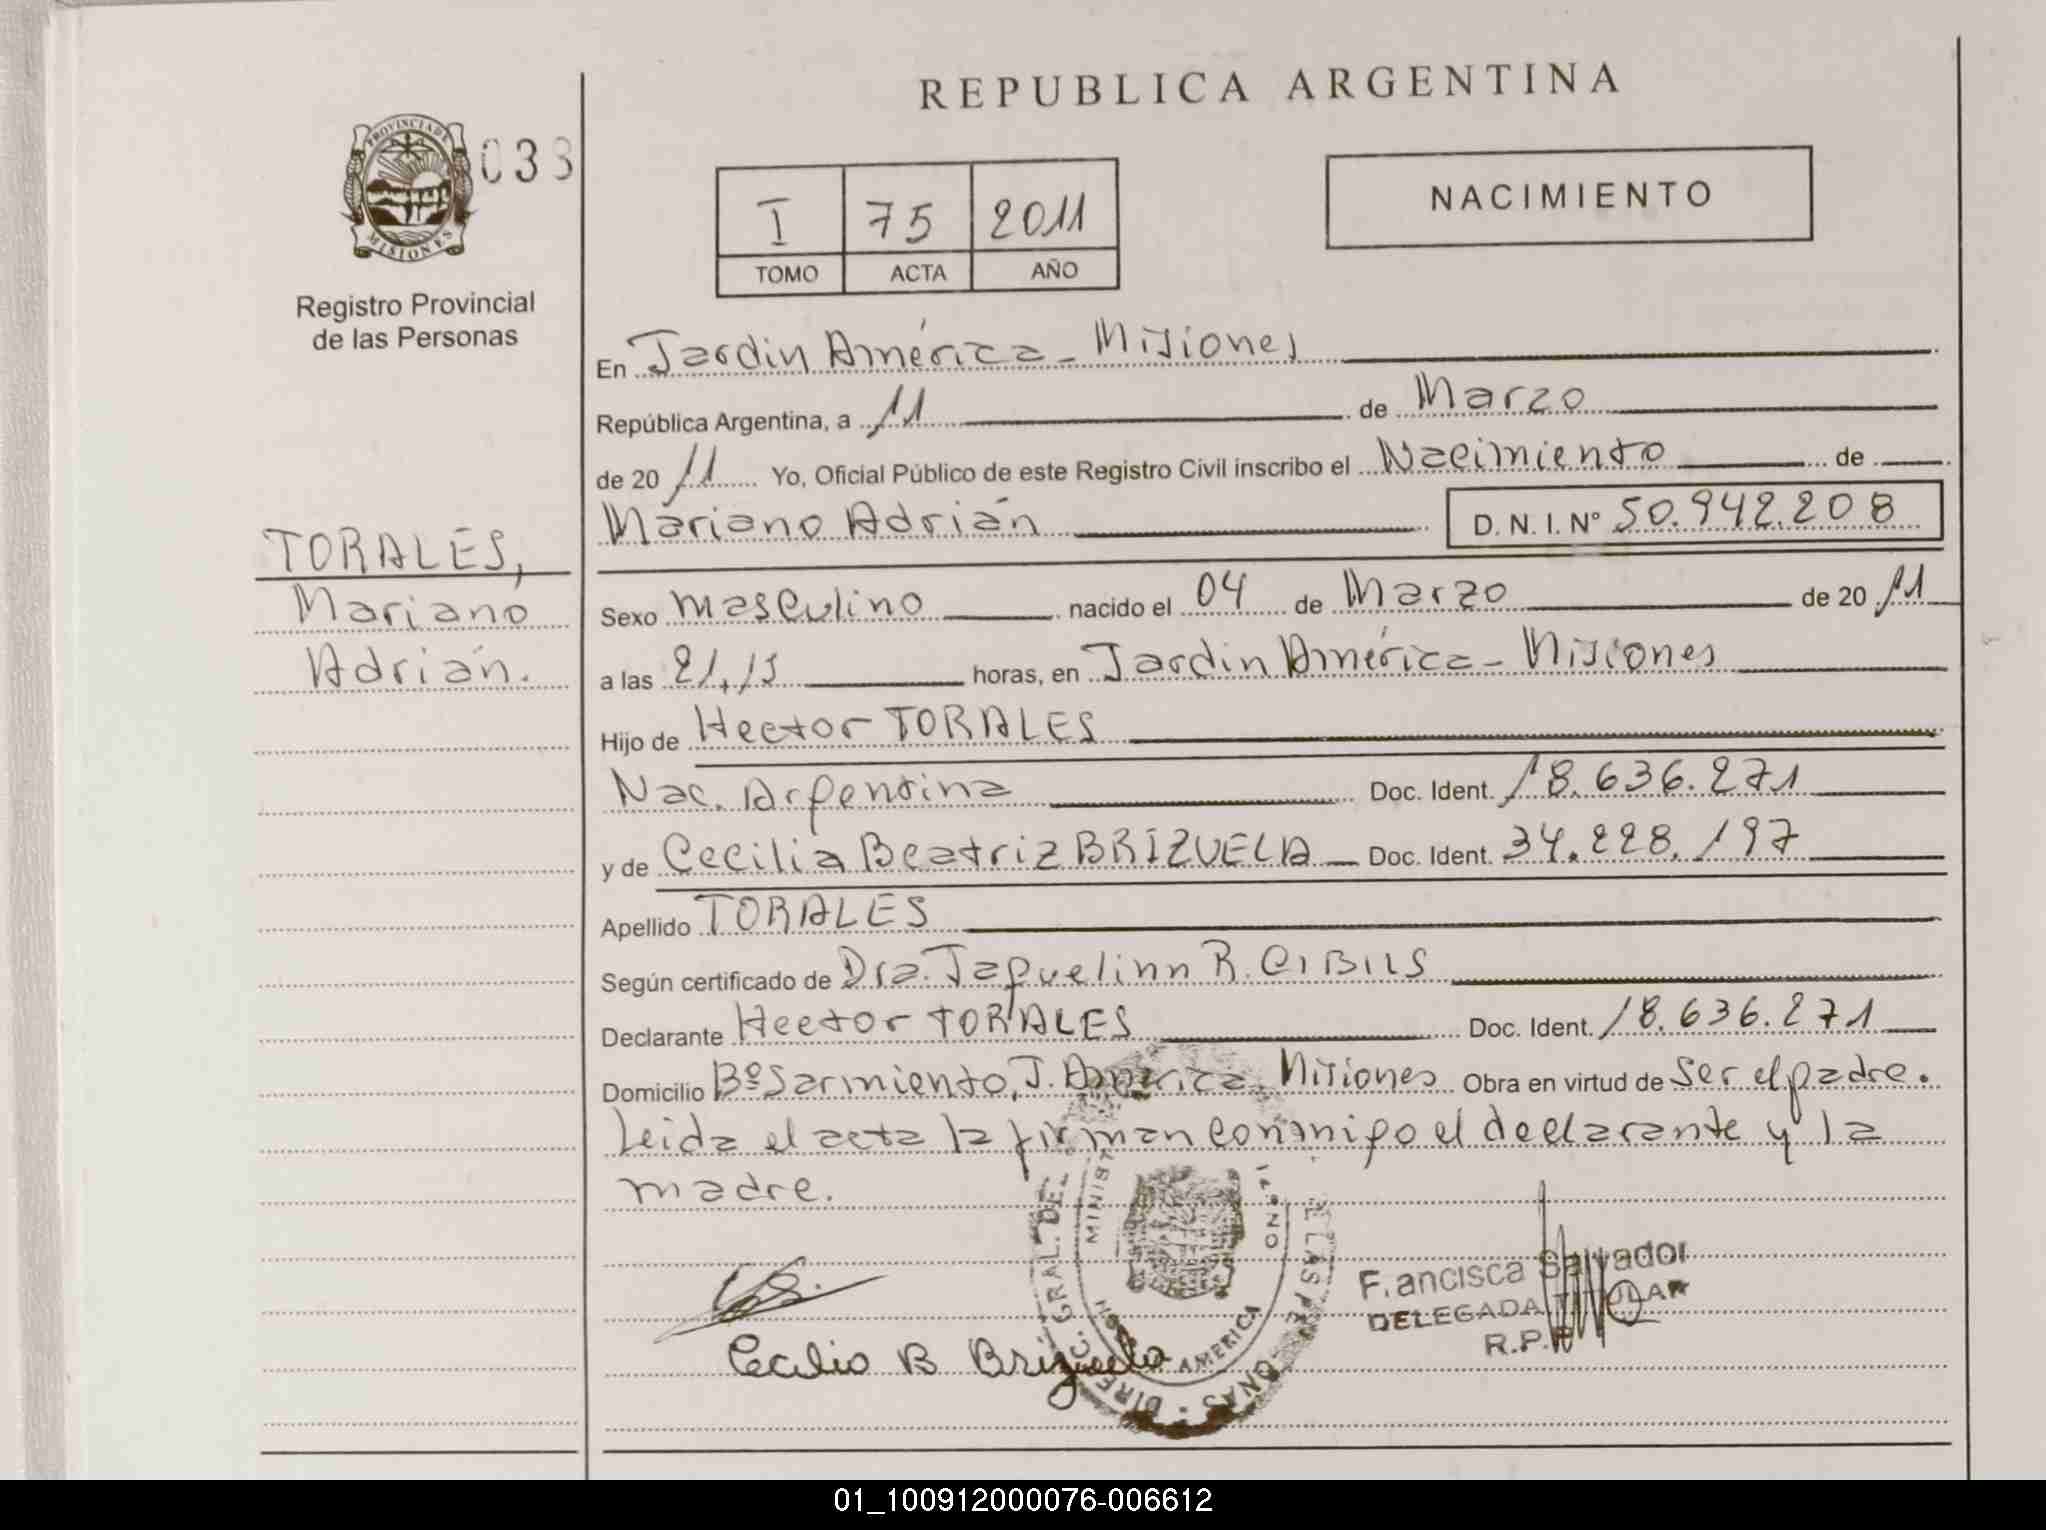 REPUBLICA ARGENTINA
PROVINCIA DE
MISIONES
038
Registro Provincial
de las Personas
I 75 2011
TOMO ACTA AÑO
NACIMIENTO
En Jardin América - Misiones
República Argentina, a 11 de Marzo
de 20 11 Yo, Oficial Público de este Registro Civil inscribo el Nacimiento de
Mariano Adrián D. N. I. Nº 50.942.208
TORALES,
Mariano
Adrián.
Sexo masculino nacido el 04 de Marzo de 20 11
a las 21,15 horas, en Jardin América - Misiones
Hijo de Hector TORALES
Nac. Argentina Doc. Ident. 18.636.271
y de Cecilia Beatriz BRIZUELA Doc. Ident. 34.228.197
Apellido TORALES
Según certificado de Dra. Jaquelinn R. CIBILS
Declarante Hector TORALES Doc. Ident. 18.636.271
Domicilio Bº Sarmiento, J. América, Misiones Obra en virtud de Ser el padre.
Leida el acta la firman conmigo el declarante y la
madre.
DIREC. GRAL. DE LAS PE ONAS
MINIST
AMERICA
F.ancisca Salvador
DELEGADA TITULAR
R.P.P
Cecilia B Brizuela
01_100912000076-006612